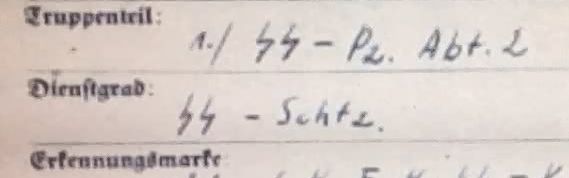 Truppenteil: 1./ SS - Pz. Abt. 2
Dienstgrad: SS - Schtz.
Erkennungsmarke